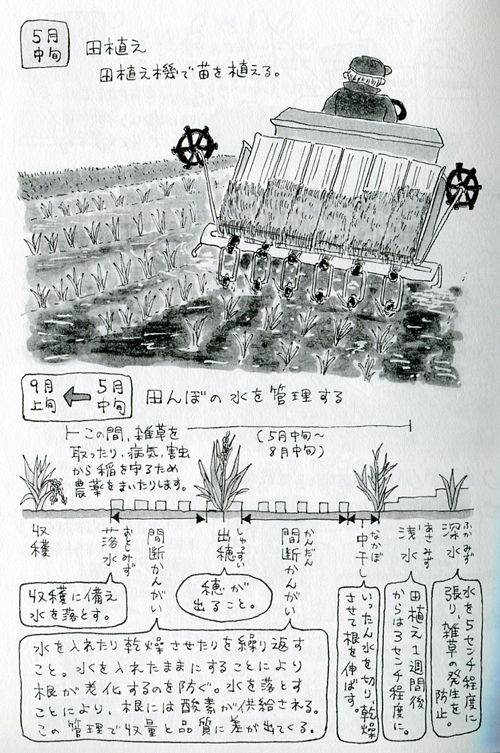 5月
中旬
田植え
田植え機で苗を植える。
9月
上旬
5月
中旬
田んぼの水を管理する
この間、雑草を
取ったり、病気、害虫
から稲を守るため
農薬をまいたりします。
(5月中旬~
8月中旬)
ふか みず
深水
水を5センチ程度に
張り、雑草の発生を
防止。
あさ みず
浅水
田植え1週間後
からは3センチ程度に。
なかぼ
中干し
いったん水を切り、乾燥
させて根を伸ばす。
かんだん
間断かんがい
しゅっすい
出穂
穂が
出ること。
かんだん
間断かんがい
おとしみず
落水
収穫に備え
水を落とす。
収穫
水を入れたり乾燥させたりを繰り返す
こと。水を入れたままにすることにより
根が老化するのを防ぐ。水を落とす
ことにより、根には酸素が供給される。
この管理で収量と品質に差が出てくる。